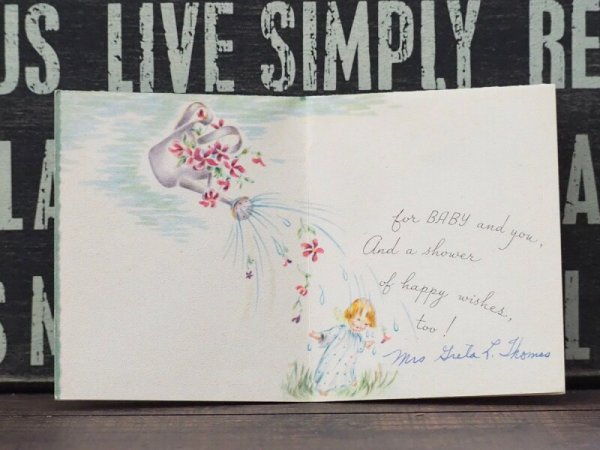 US LIVE SIMPLY RE
LA
A
S N
for BABY and you,
And a shower
of happy wishes,
too!
Mrs Greta L. Thomas